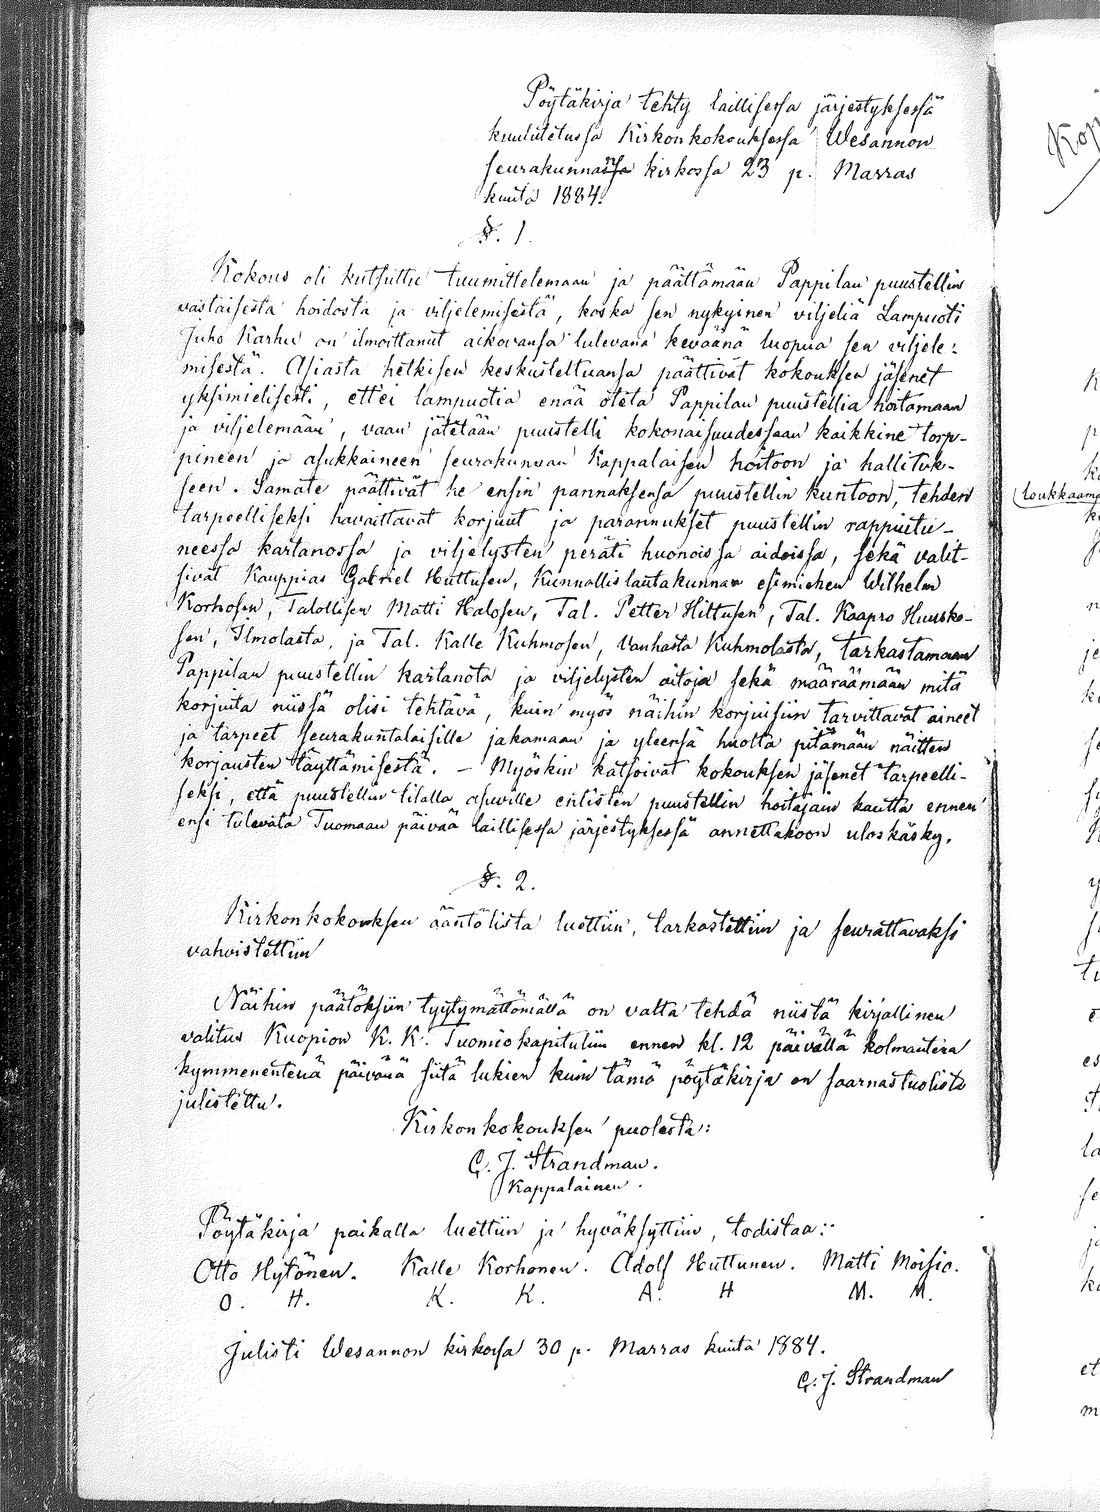 Pöytäkirja tehty laillisessa järjestyksessä
kuulutetussa Kirkonkokouksessa Wesannon
seurakunnan kirkossa 23 p. Marras
kuuta 1884.
§. 1.
Kokous oli kutsuttu tuumittelemaan ja päättämään Pappilan puustellin
vastaisesta hoidosta ja viljelemisestä, koska sen nykyinen viljeliä Lampuoti
Juho Karhu on ilmoittanut aikovansa tulevana keväänä luopua sen viljele:
misestä. Asiasta hetkisen keskusteltuansa päättivät kokouksen jäsenet
yksimielisesti, ettei lampuotia enää oteta Pappilan puustellia hoitamaan
ja viljelemään, vaan jätetään puustelli kokonaisuudessaan kaikkine torp-
pineen ja asukkaineen seurakunnan Kappalaisen hoitoon ja hallituk-
seen. Samate päättivät he ensin pannaksensa puustellin kuntoon, tehden
tarpeelliseksi havaittavat korjuut ja parannukset puustellin rappiutu-
neessa kartanossa ja viljelysten peräti huonoissa aidoissa, sekä valit-
sivat Kauppias Gabriel Huttusen, Kunnallislautakunnan esimiehen Wilhelm
Korhosen, Talollisen Matti Halosen, Tal. Petter Hiltusen, Tal. Kaapro Huusko-
sen, Ilmolasta, ja Tal. Kalle Kuhmosen, Vanhasta Kuhmolasta, tarkastamaan
Pappilan puustellin kartanota ja viljelysten aitoja sekä määräämään mitä
korjuita niissä olisi tehtävä, kuin myös näihin korjuisiin tarvittavat aineet
ja tarpeet seurakuntalaisille jakamaan ja yleensä huolta pitämään näitten
korjausten täyttämisestä. – Myöskin katsoivat kokouksen jäsenet tarpeelli-
seksi, että puustellin tilalla asuville entisten puustellin hoitajain kautta ennen
ensi tulevata Tuomaan päivää laillisessa järjestyksessä annettakoon uloskäsky.
§. 2.
Kirkonkokouksen ääntölista luettiin, tarkastettiin ja seurattavaksi
vahvistettiin
Näihin päätöksiin tyytymättömällä on valta tehdä niistä kirjallinen
valitus Kuopion K. K. Tuomiokapituliin ennen kl. 12 päivällä kolmantena
kymmenentenä päivänä siitä lukien kuin tämä pöytäkirja on saarnastuolista
julistettu.
Kirkonkokouksen puolesta:
G. J. Strandman.
Kappalainen.
Pöytäkirja paikalla luettiin ja hyväksyttiin, todistaa:
Otto Hytönen. Kalle Korhonen. Adolf Huttunen. Matti Moisio.
O. H. K. K. A. H M. M.
Julisti Wesannon kirkossa 30 p. Marras kuuta 1884.
G. J. Strandman